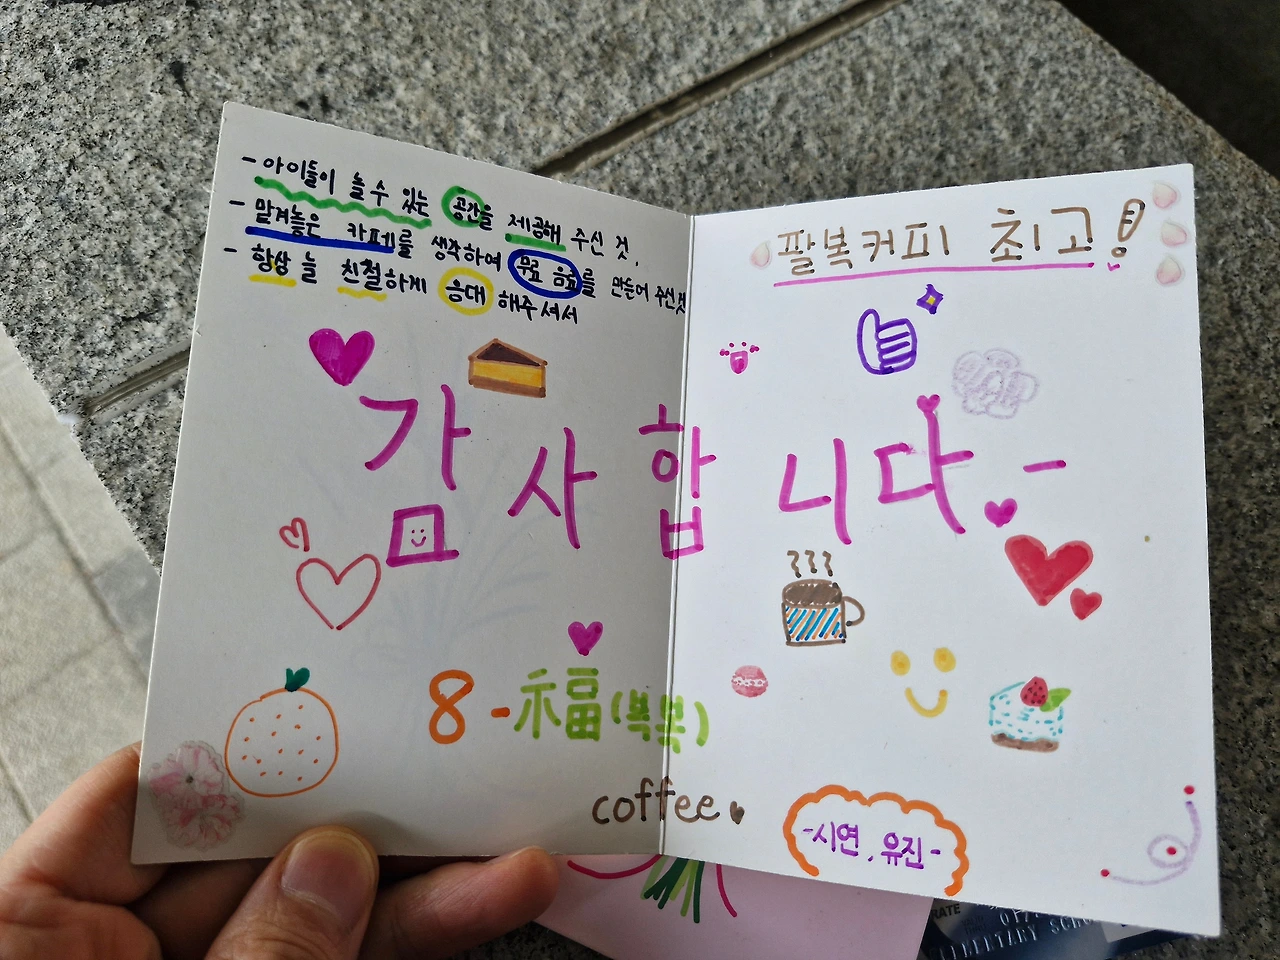 - 아이들이 놀 수 있는 공간을 제공해 주신 것,
- 맡겨놓은 카페를 생각하여 무료 음료를 만들어 주신것
- 항상 늘 친절하게 응대 해주셔서
팔복커피 최고!
감사합니다-
8-福(복복)
coffee
-시연, 유진-
RATE